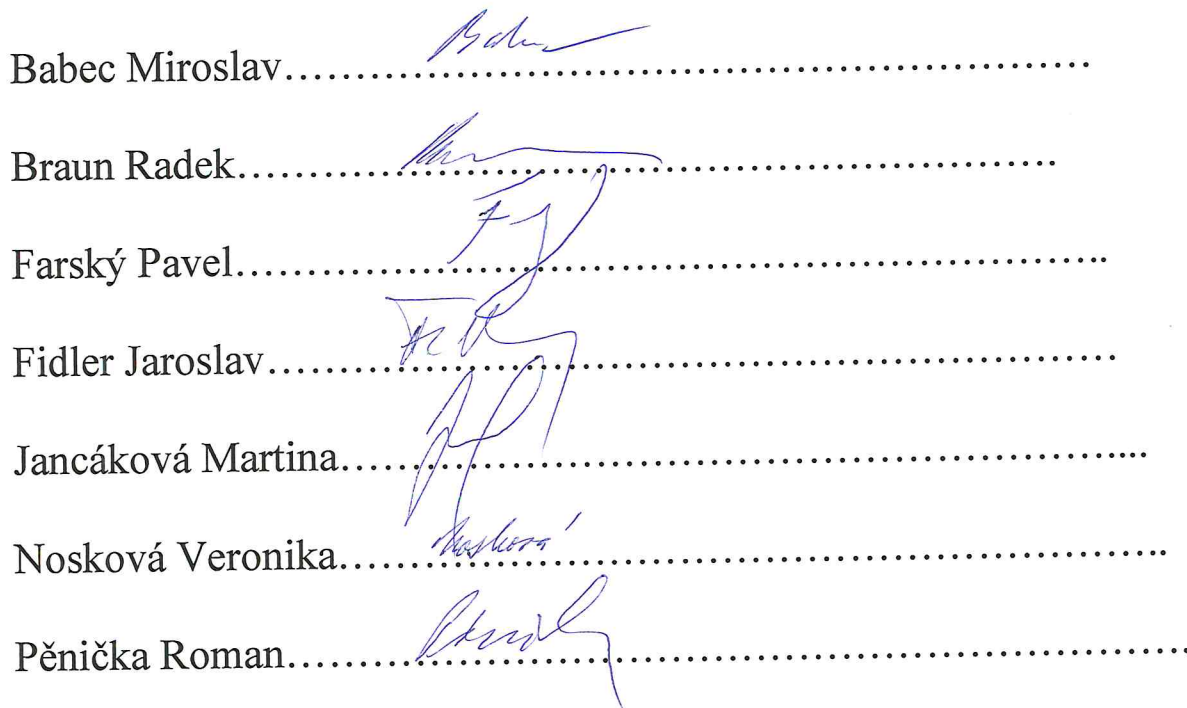 Babec Miroslav……………………………………………………
Braun Radek……………………………………………………
Farský Pavel……………………………………………………..
Fidler Jaroslav……………………………………………………
Jancáková Martina…………………………………………………....
Nosková Veronika……………………………………………………..
Nosková
Pěnička Roman…………………………………………………………